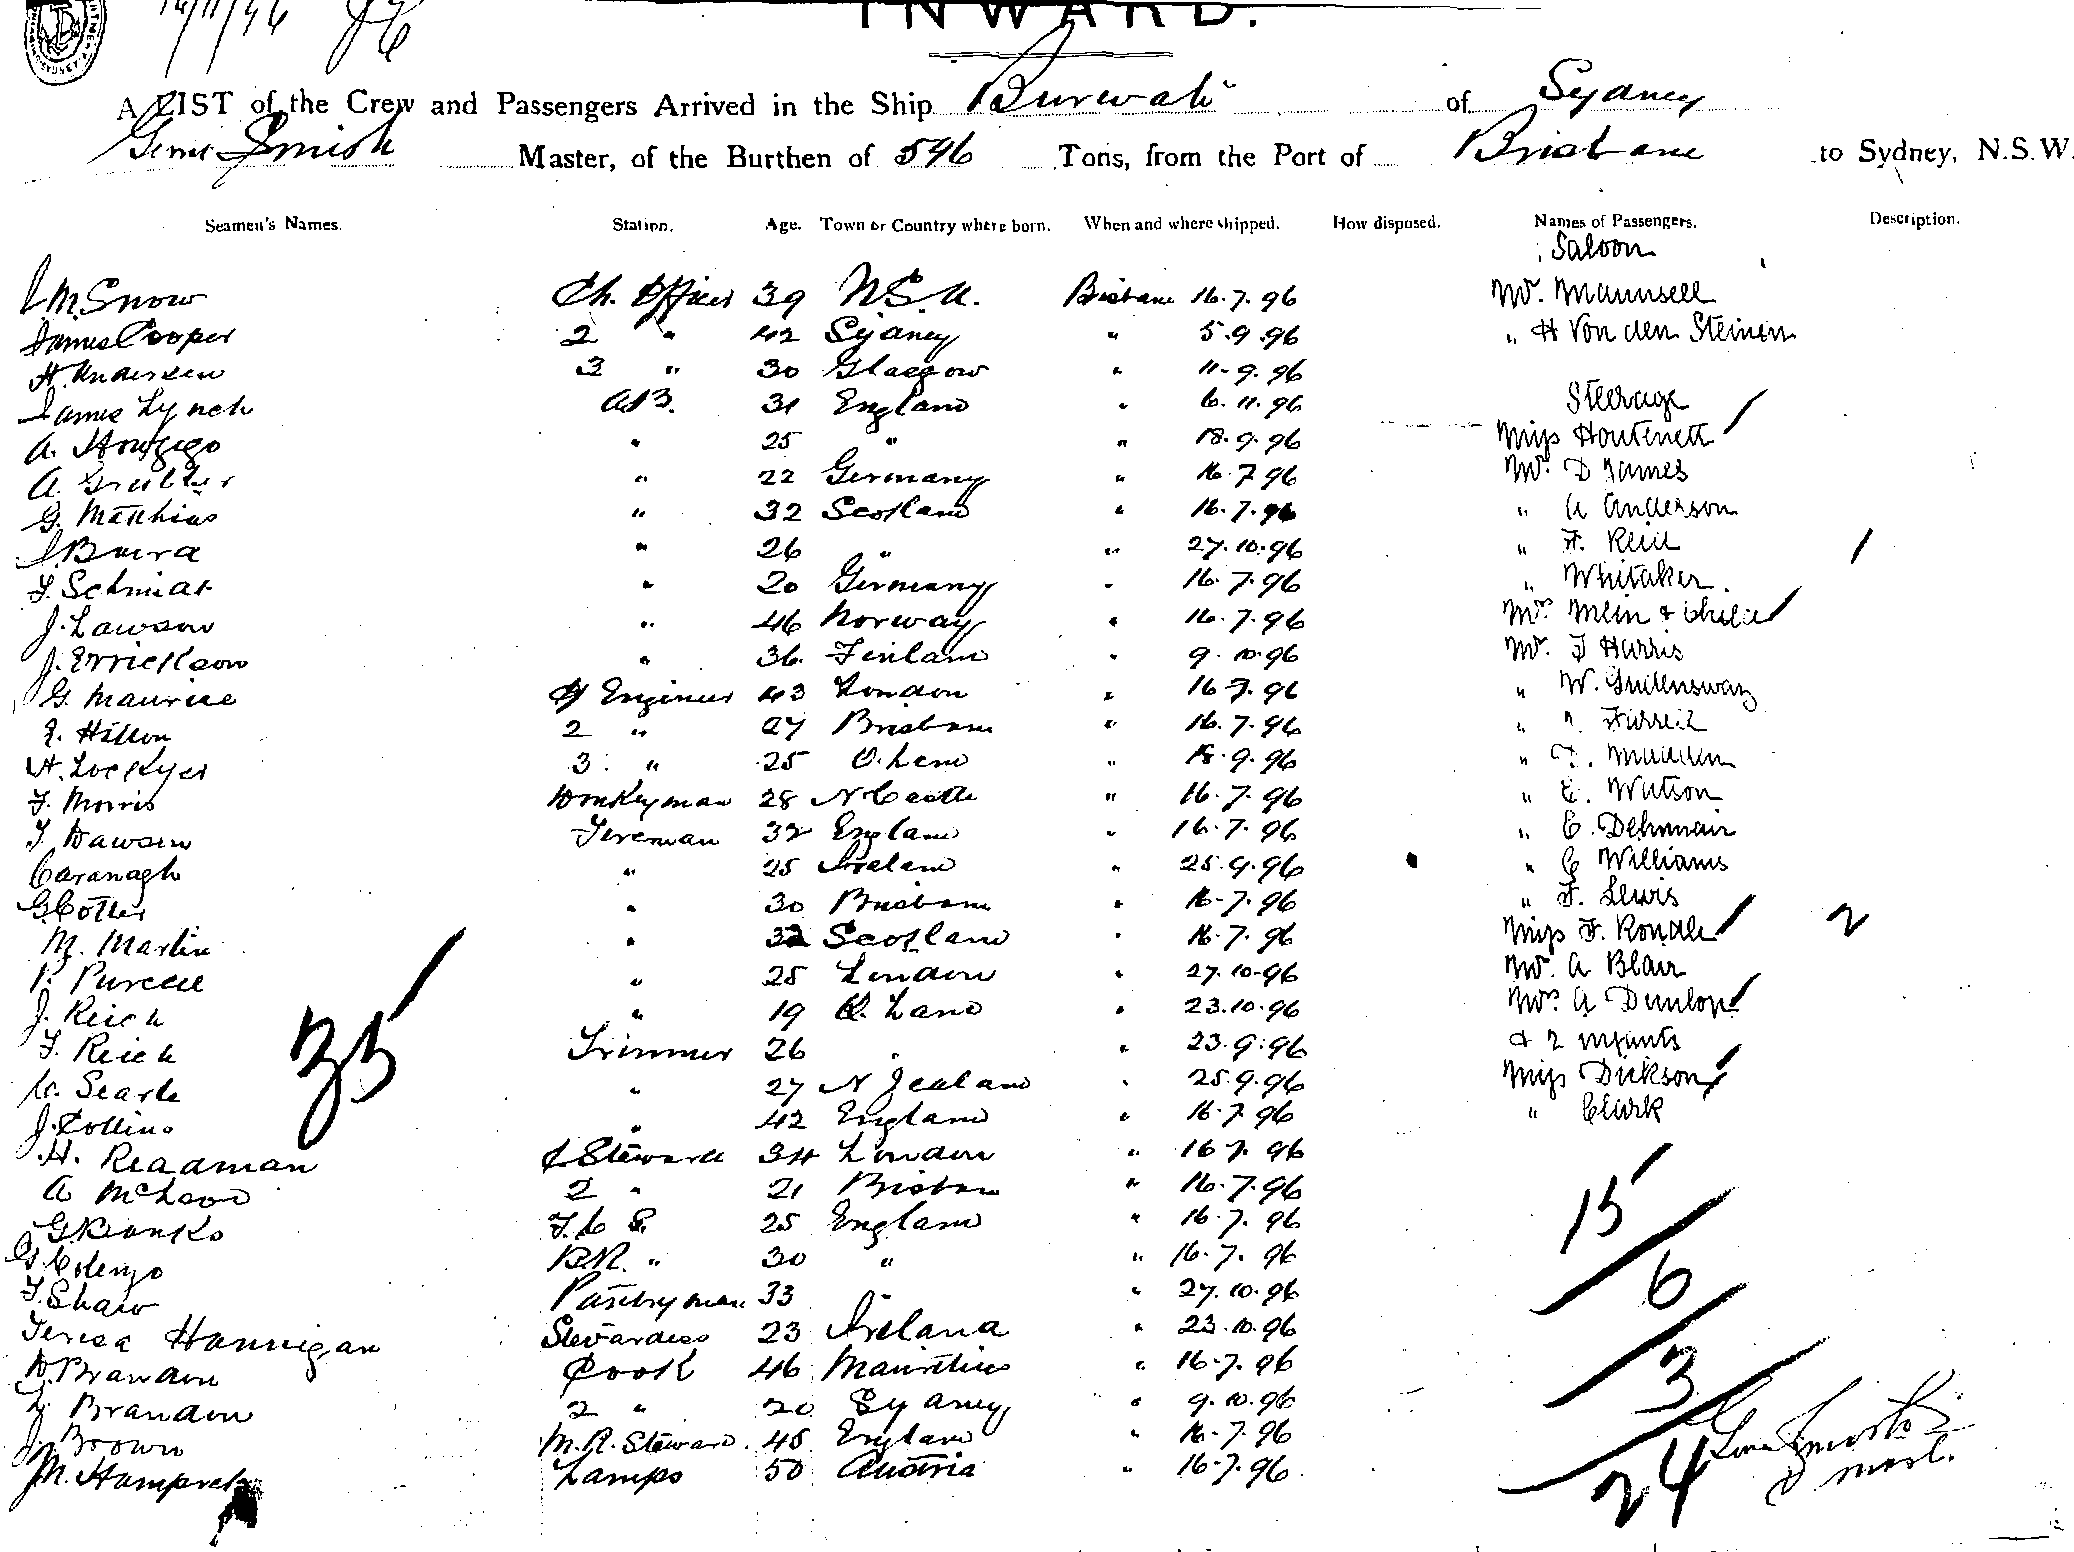 16/11/96
INWARD.
A LIST of the Crew and Passengers Arrived in the Ship Burwah of Sydney
Smith Master, of the Burthen of 596 Tons, from the Port of Brisbane to Sydney, N.S.W.
Seamen's Names. Station. Age. Town or Country where born. When and where shipped. How disposed. Names of Passengers. Description.
Saloon
J. M. Snow Ch. Officer 39 N.S.W. Brisbane 16.7.96 Mr. Maunsell
James Cooper 2 " 42 Sydney " 5.9.96 " H Von den Steinen
H. Andersen 3 " 30 Glasgow " 11.9.96
James Lynch A.B. 31 England " 6.11.96 Steerage
A. " 25 " " 18.9.96 Miss Houtenett
A. " 22 Germany " 16.7.96 Mr. D James
G. Matthias " 32 Scotland " 16.7.96 " A Anderson
" 26 " " 27.10.96 " F. Reid
F. Schmidt " 20 Germany " 16.7.96 " Whitaker.
J. Lawson " 46 Norway " 16.7.96 Mrs Mein & Child
J. Errickson " 36 Finland " 9.10.96 Mr. J Harris
G. Maurice Engineer 43 London " 16.7.96 " W.
E. Hilton 2 " 27 Brisbane " 16.7.96 "
H. Lockyer 3 " 25 Q.Land " 18.9.96 " Madden
F. Morris Donkeyman 28 N Castle " 16.7.96 " E. Watson
T. Dawson Fireman 32 England " 16.7.96 " E.
Cavanagh " 25 Ireland " 25.9.96 " C Williams
G. Cotter " 30 Brisbane " 16.7.96 " F. Lewis
M. Martin " 32 Scotland " 16.7.96 Miss F. Ronald 2
P. Purcell " 25 London " 27.10.96 Mr. A Blair
J. Reich " 19 Q. Land " 23.10.96 Mrs. A Dunlop
F. Reich Trimmer 26 " " 23.9.96 & 2 infants
W. Searle " 27 N Zealand " 25.9.96 Miss Dickson
J. Collins " 42 England " 16.7.96 " Clark
35
H. Readman C Steward 34 London " 16.7.96
A McLeod 2 " 21 Brisbane " 16.7.96
G. Banks F. C S. 25 England " 16.7.96
G. Colenzo B.R. " 30 " " 16.7.96
F. Shaw Pantryman 33 " " 27.10.96
Teresa Hannigan Stewardess 23 Ireland " 23.10.96
D. Brandon Cook 46 Mauritius " 16.7.96
L. Brandon 2 " 20 Sydney " 9.10.96
J. Brown M.R. Steward 45 England " 16.7.96
M. Lamps 50 Austria " 16.7.96
15
6
3
24